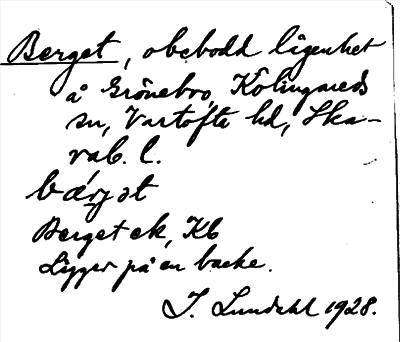 Berget, obebodd lägenhet
å Grönebro, Kölingareds
sn, Vartofta hd, Ska-
rab. l.
bærjət
Berget ek, Kb
Ligger på en backe.
I. Lundahl 1928.